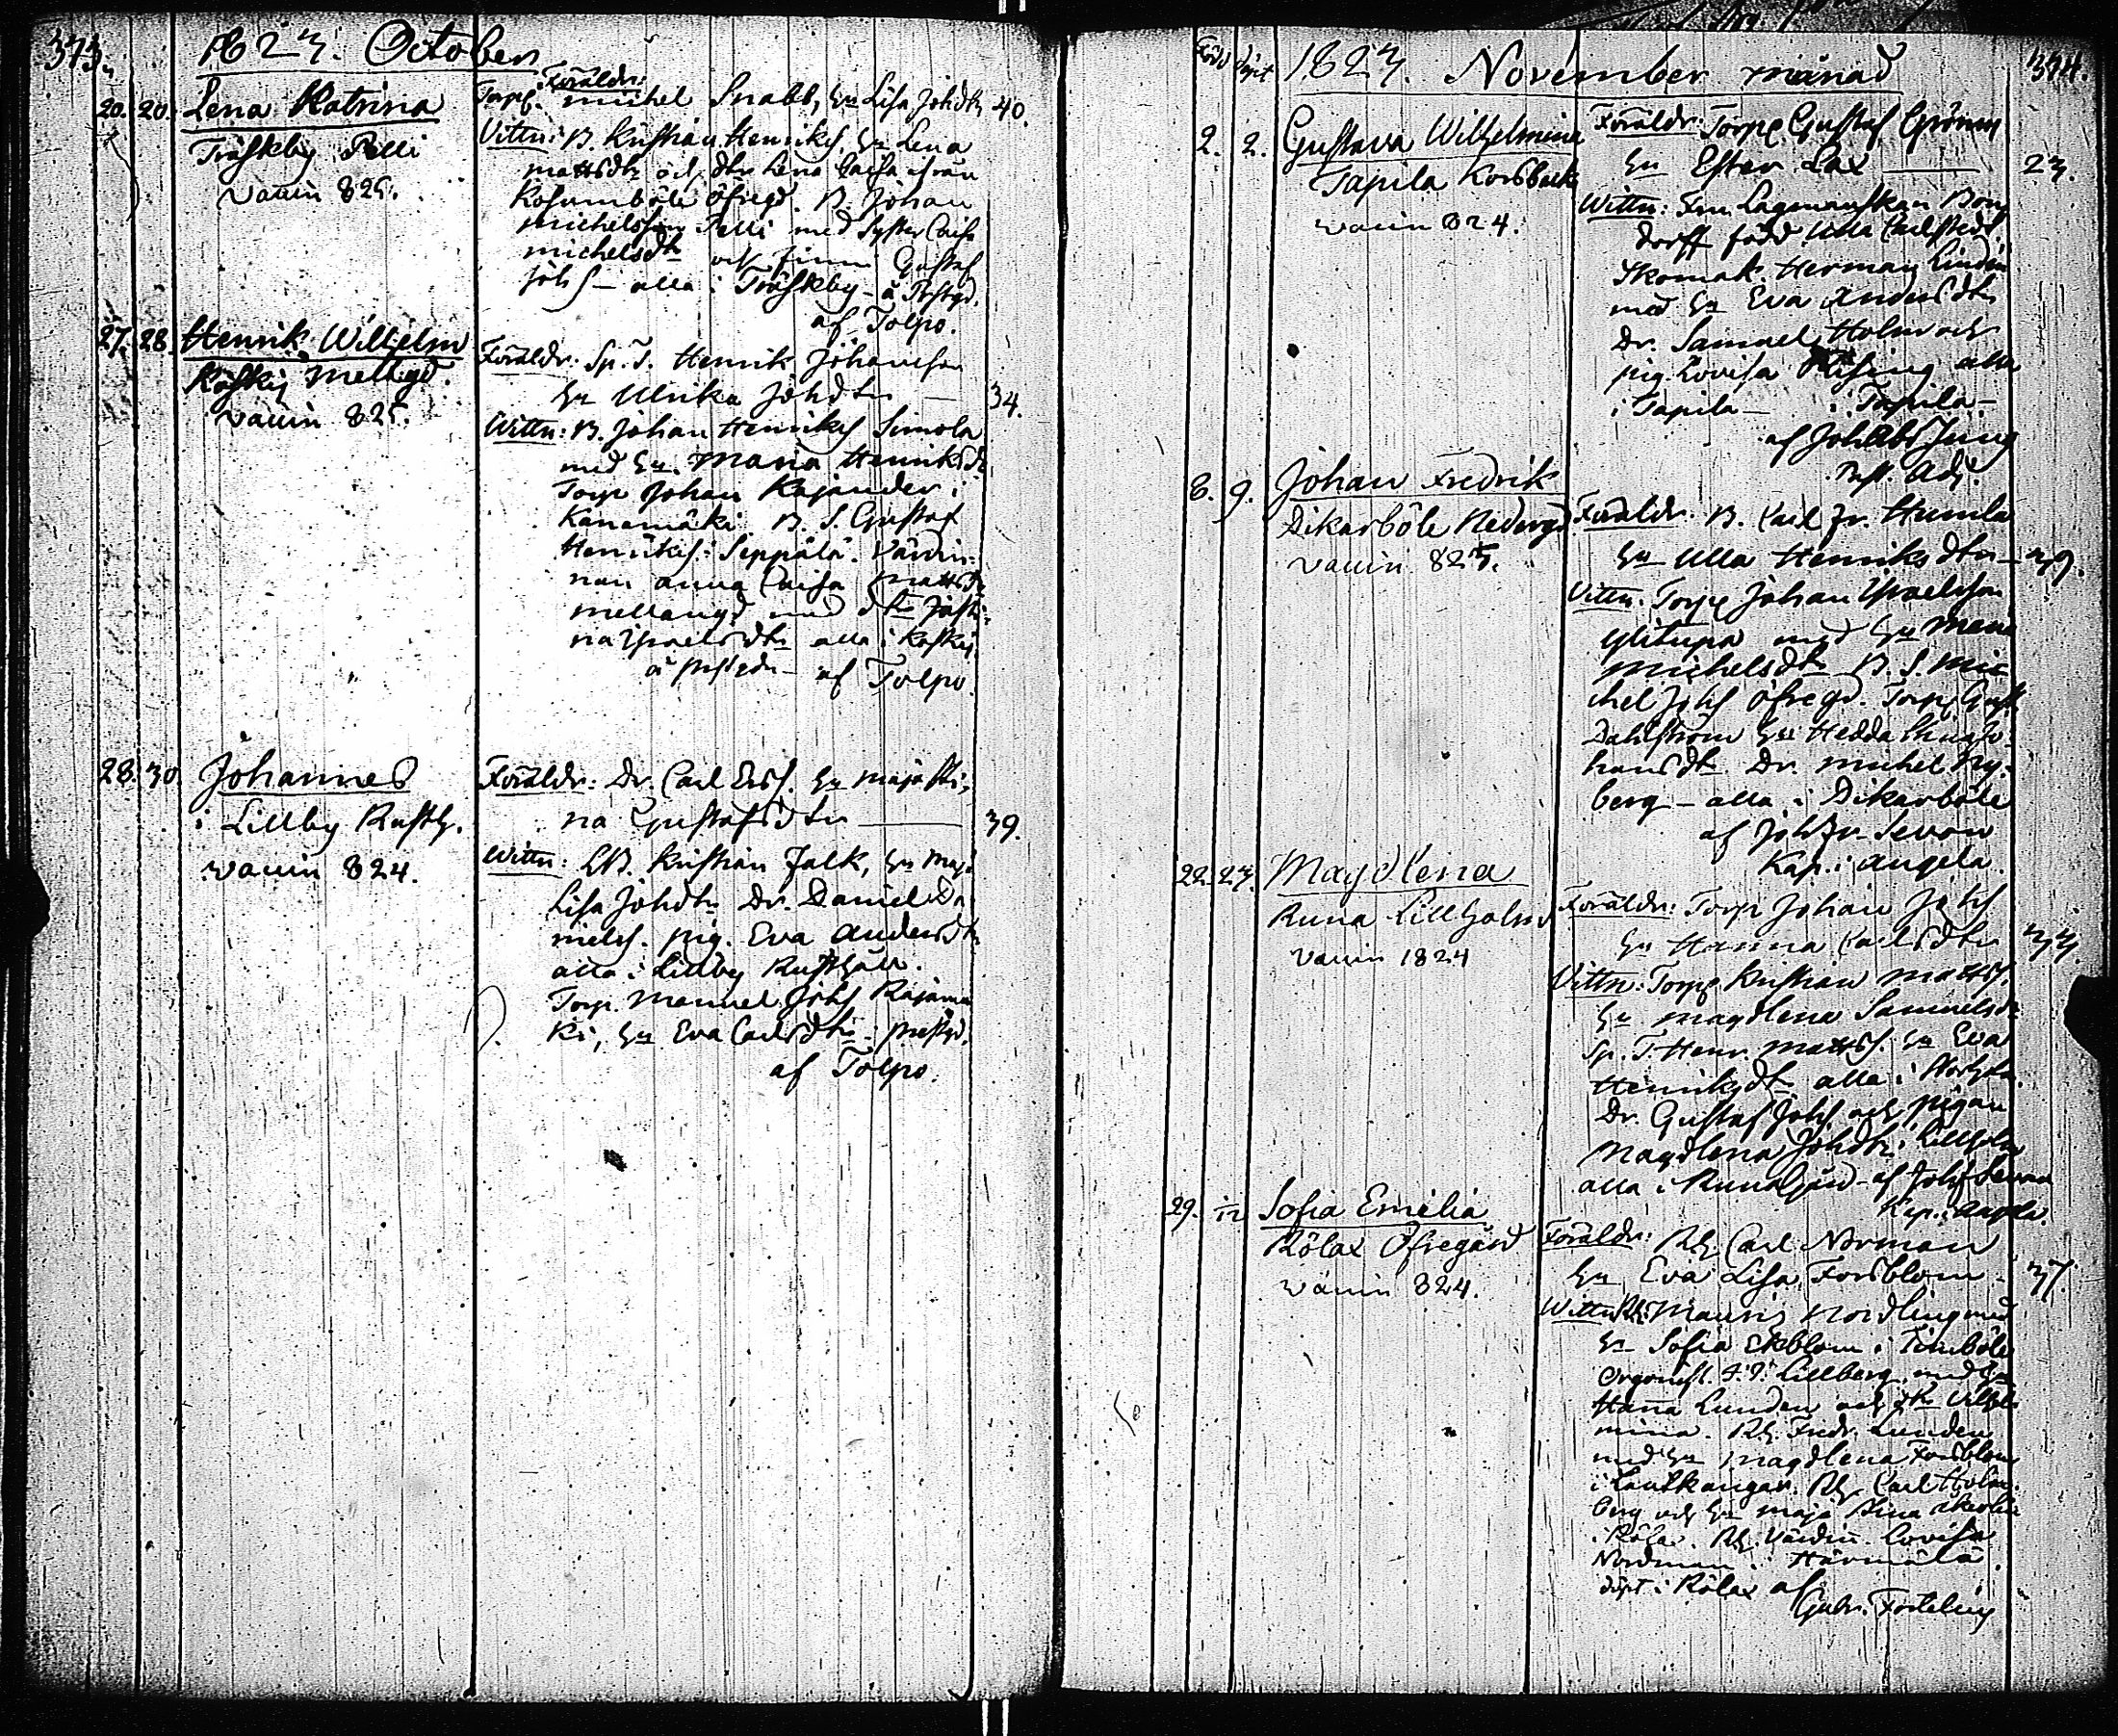 373.
1823. October
20. 20. Lena Katrina
Träskby Pelli
vaccin 825.
Föräldr:
Torp. Michel Snabb, hu Lisa Johdtr 40.
Vittn: B. Kristian Henrikss. hu Lena
Mattsdtr och dtr Lena Caisa ifrån
Rosumböle Öfregd. B. Johan
Michelsson Pelli med Syster Caisa
Michelsdtr och Gustaf
Johss alla i Träskby å Prstgd.
af Tolpo.
27. 28. Henrik Wilhelm
Koskis Mellgd.
vaccin 825.
Föräldr: Sp. T. Henrik Johansson
hu Ulrika Johdtr 34.
Wittn: B. Johan Henrikss Simola
med hu. Maria Henriksdr
Torp Johan Kajander i
Kanamäki B. S. Gustaf
Henrikss. i Seppälä. Värdin-
nan Anna Caisa Mattsdr
Mellangd med dtr Justi-
na Israelsdtr alla i Koskis
å prstgdn af Tolpo.
28. 30. Johannes
i Lillby Rusth.
vaccin 824.
Föräldr: Dr. Carl Erss. hu Maja Sti-
na Gustafsdtr 39.
Wittn: LB. Kristian Falk, hu Maja
Lisa Johdtr Dr. Daniel Da-
nielss. pig. Eva Andersdtr
alla i Lillby Rusthåll.
Torp. Manuel Johss Rajamä
ki, hu Eva Carlsdtr i prestgd.
af Tolpo.
Född Döpt 1823. November månad 374.
2. 2. Gustava Wilhelmina
Tapila Korsbacka
vaccin 824.
Föräldr: Torp Gustaf Grönroos
hu Ester Lax 23.
Wittn: Fru Lagmanskan Bon
dorff född Ulla Carlstedt
Skomak. Herman Lindén
med hu Eva Andersdtr
Dr. Samuel Holm och
pig. Lovisa Rising alla
i Tapila
af Joh
Prst. Adj.
8. 9. Johan Fredrik
Dikarböle Nedergd
vaccin 825.
Föräldr: B. Carl Fr. Humla
hu Ulla Henriksdtr 39.
Vittn. Torp Johan Israelsson
Ylitupa med hu Maria
Michelsdtr B. S. Mi-
chel Johss Öfregd. Torp Gust
Dahlström hu Hedda Jo-
hansdtr Dr. Michel Ny-
berg alla i Dikarböle
af Joh Fr. Sevon
Kap. i Angela.
22. 23. Magdlena
Runa Lillholm
vaccin 1824
Föräldr: Torp Johan Johss
hu Hanna Carlsdtr 33.
Vittn: Torp Kristian Mattss.
hu Magdlena Samuelsdr
Sp. T. Henr. Mattss. hu Eva
Henriksdtr alla i
Dr. Gustaf Johss och pigan
Magdlena Johdtr i Lillholm
alla i Runagård af Joh Fr Sevon
Kap. i Angela.
29. Sofia Emilia
Rölax Öfregård
vaccin 824.
Föräldr: Rh Carl Norman
hu Eva Lisa Forsblom 37.
Wittn: Rh. Mauris Nordling med
hu Sofia Ekblom i Finböle
Organist. Lillberg med hu
Hanna Lunden och dtr Vilhel-
mina. Rh. Fredr. Lunden
med hu Magdlena Forsblom
i Lautkangar. Rh Carl Holm-
berg och hu Maja Stina
i Rölax. Rh. Värdin. Lovisa
Nordman i Härmälä
döpt i Rölax af
Gabr. Fortelius